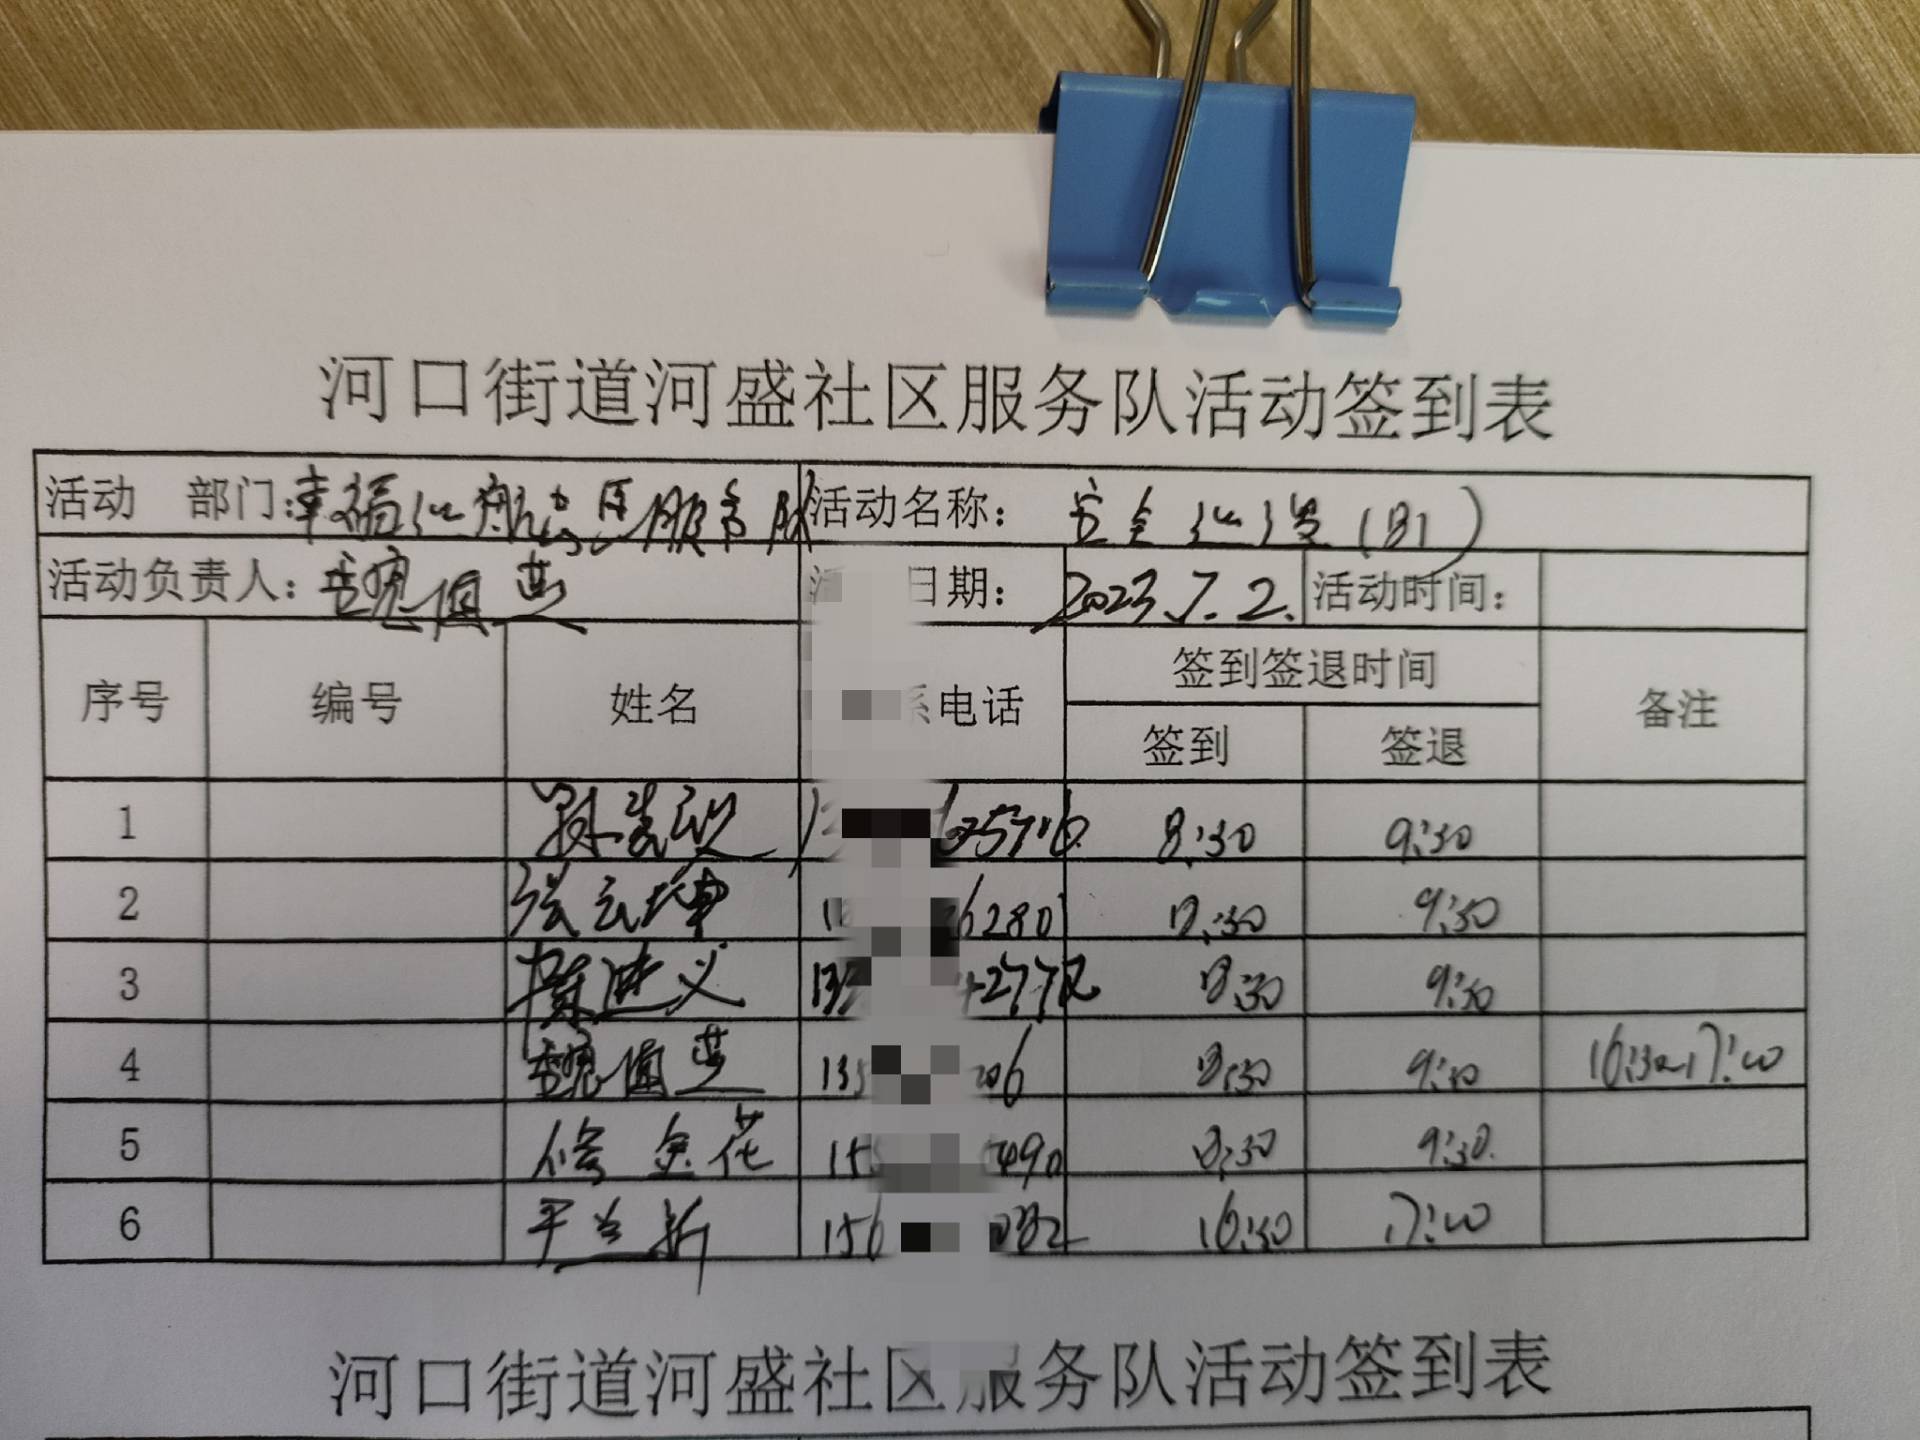 河口街道河盛社区服务队活动签到表
活动 部门: 幸福 志愿服务队 活动名称: 安全巡逻(B1)
活动负责人: 魏 日期: 2023.7.2. 活动时间:
序号 编号 姓名 系电话 签到签退时间 备注
签到 签退
1 孙 8:30 9:30
2 张云坤 6280 8:30 9:30
3 陈进义 135 8:30 9:30
4 魏 135 206 8:30 9:30 16:30-17:00
5 徐金花 490 8:30 9:30
6 于兰新 156 082 16:30 17:00
河口街道河盛社区服务队活动签到表